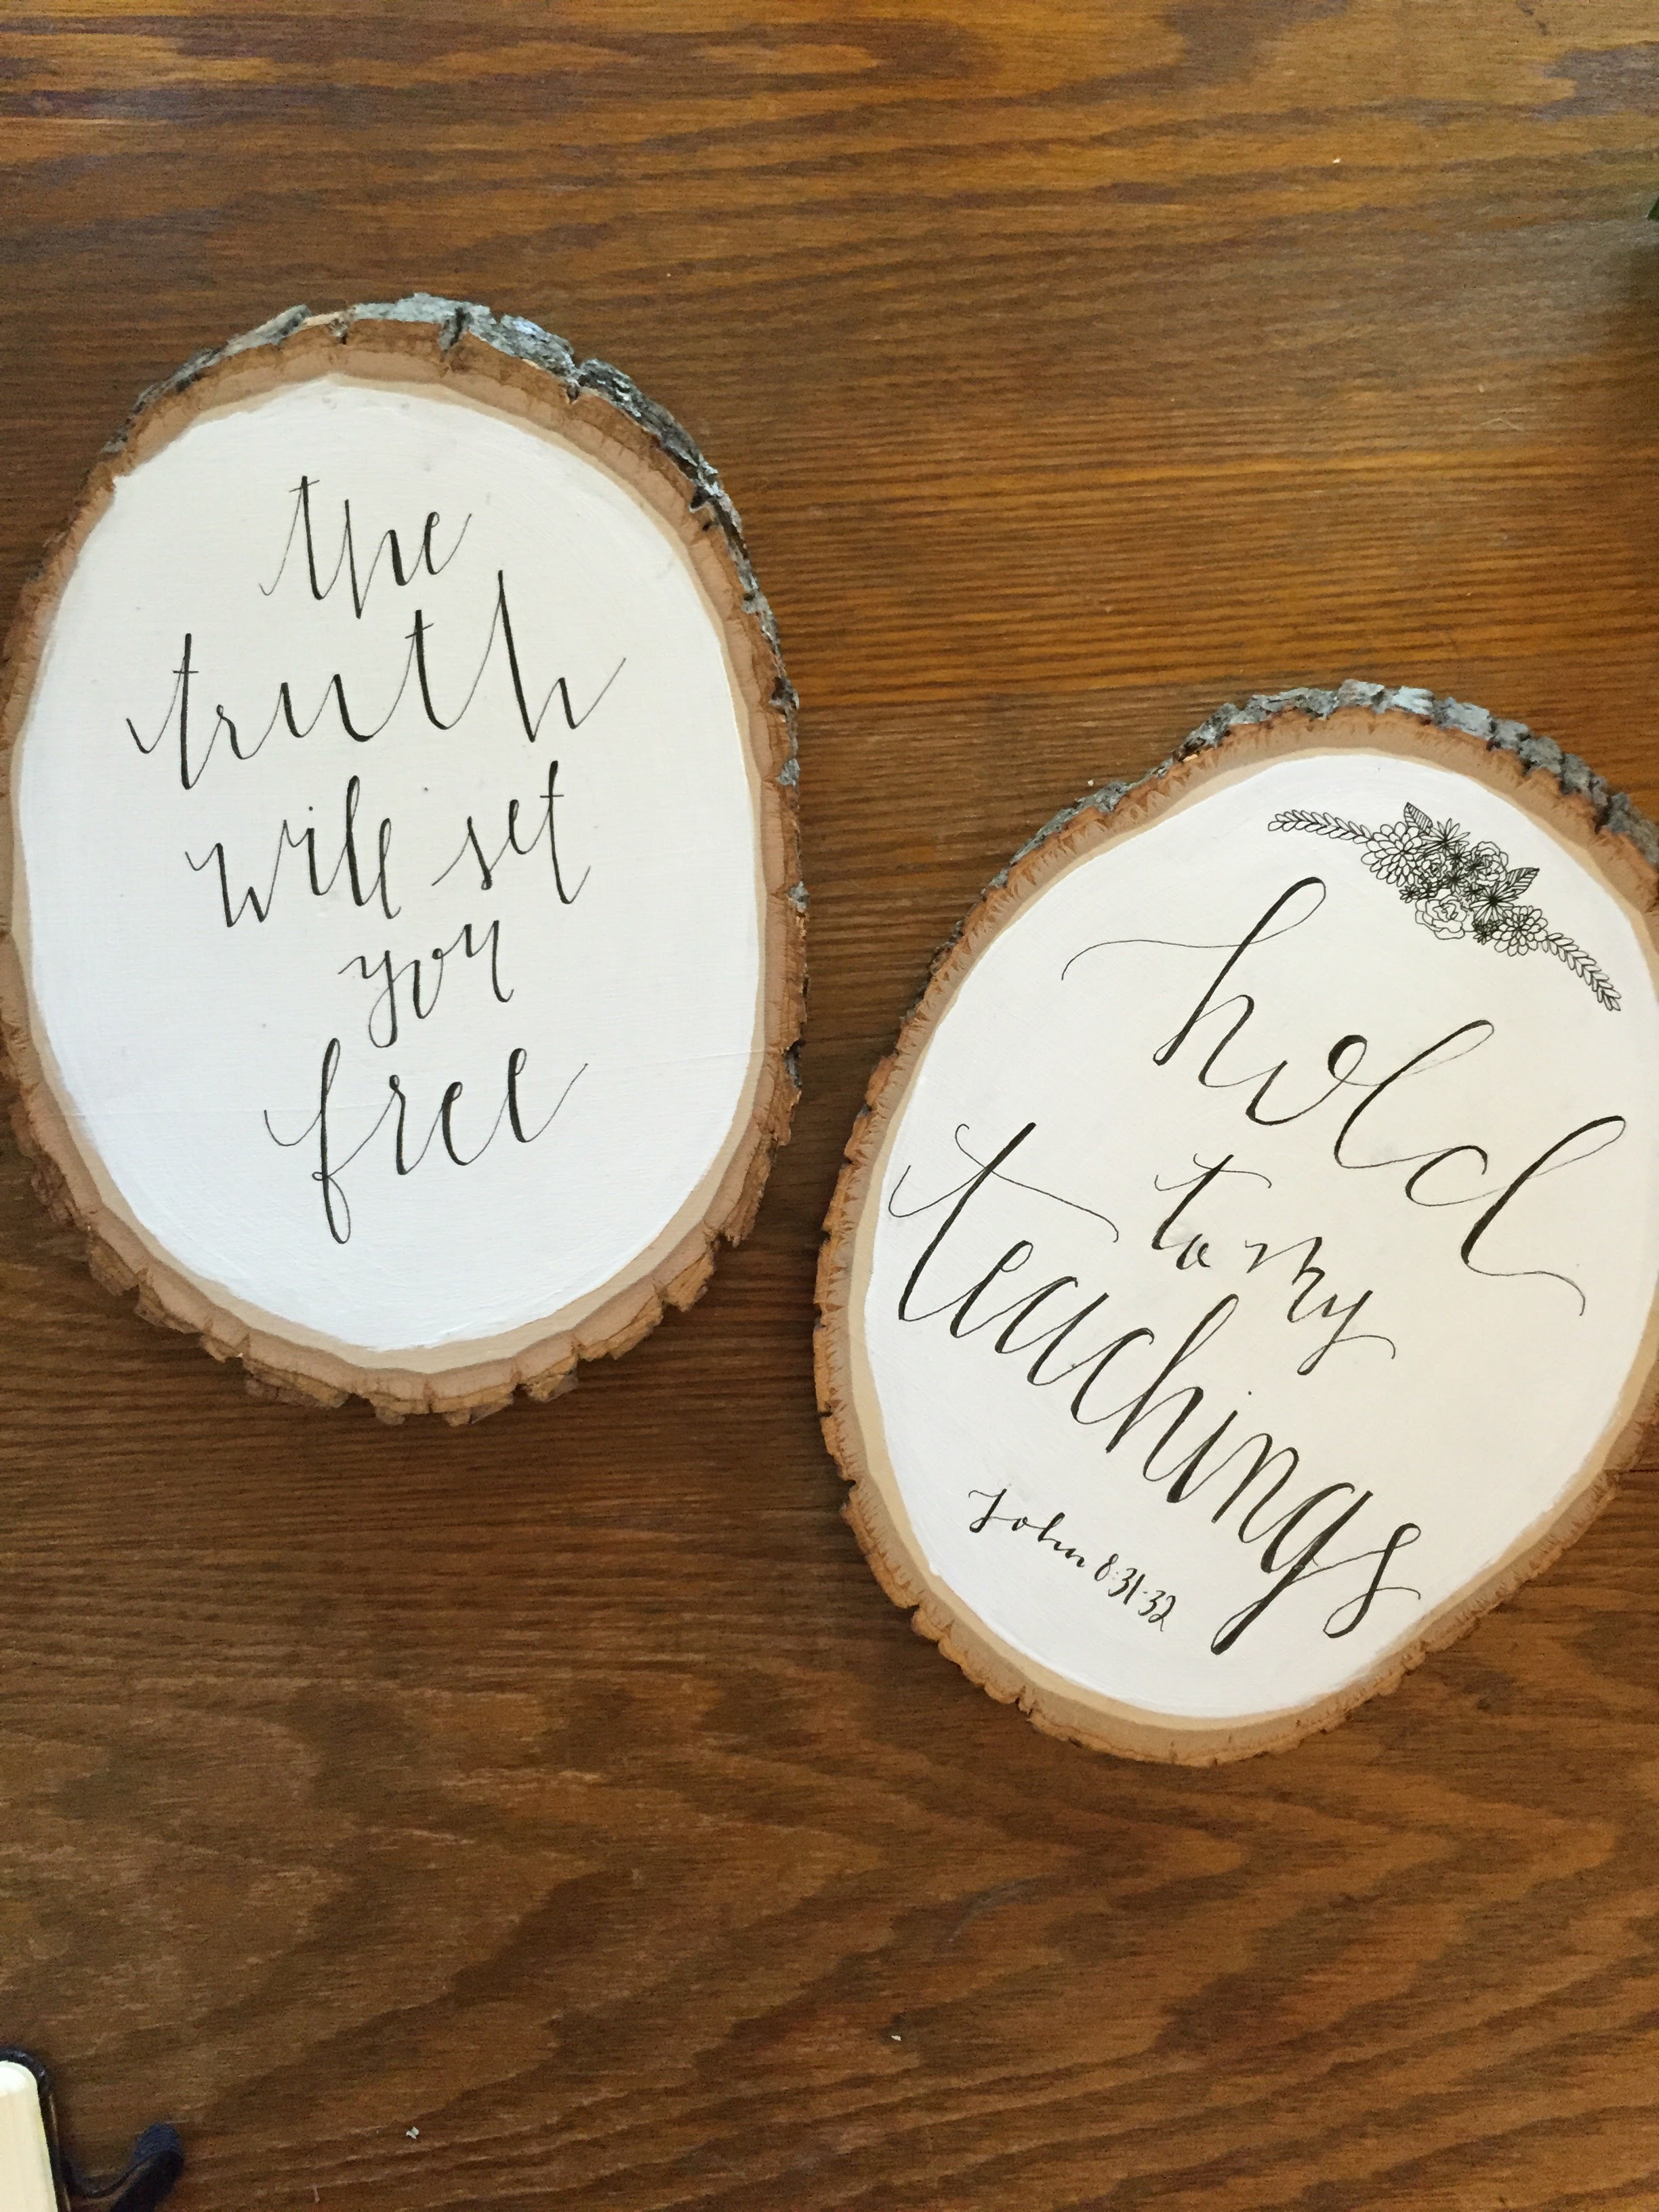 the
truth
will set
you
free
hold
to my
teachings
John 8:31-32